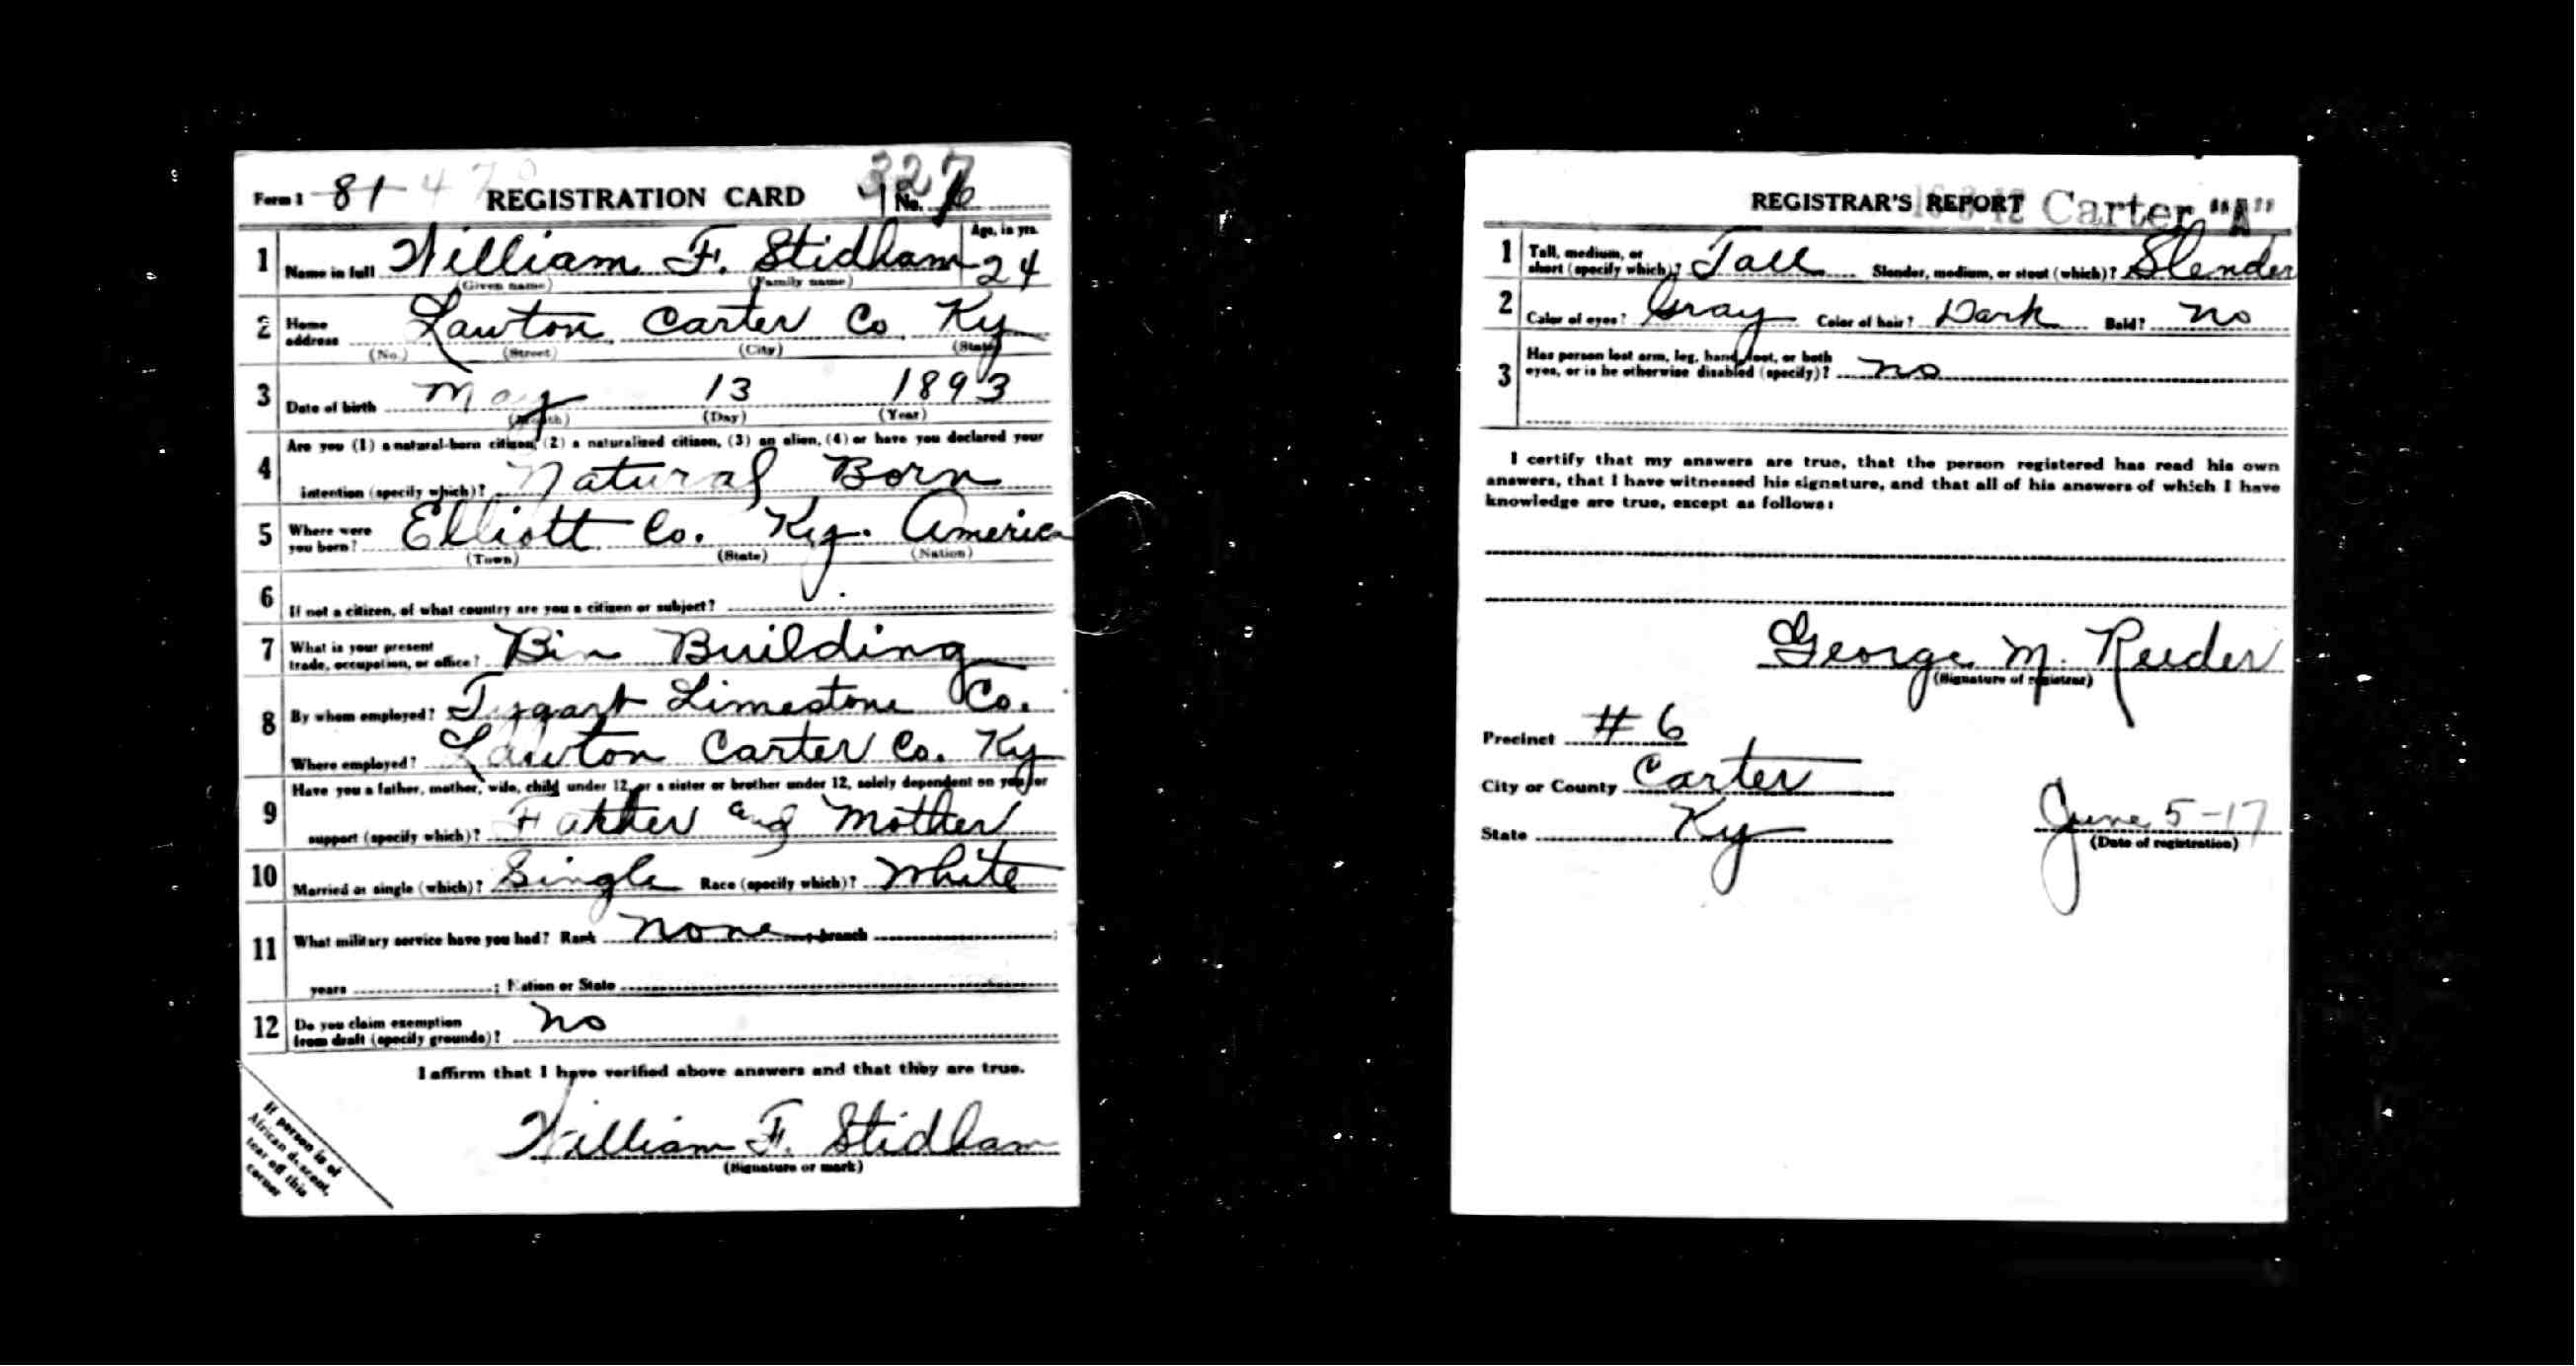 Form 1 81 470 REGISTRATION CARD 327 No. 16
1 Name in full William F. Stidham Age, in yrs. 24
(Given name) (Family name)
2 Home address Lawton, Carter Co Ky
(No.) (Street) (City) (State)
3 Date of birth May 13 1893
(Month) (Day) (Year)
4 Are you (1) a natural-born citizen, (2) a naturalized citizen, (3) an alien, (4) or have you declared your
intention (specify which)? Natural Born
5 Where were you born? Elliott Co. Ky. America
(Town) (State) (Nation)
6 If not a citizen, of what country are you a citizen or subject?
7 What is your present trade, occupation, or office? Bin Building
8 By whom employed? Tygart Limestone Co.
Where employed? Lawton Carter Co. Ky
9 Have you a father, mother, wife, child under 12, or a sister or brother under 12, solely dependent on you for
support (specify which)? Father and Mother
10 Married or single (which)? Single Race (specify which)? White
11 What military service have you had? Rank None branch ;
years ; Nation or State
12 Do you claim exemption from draft (specify grounds)? No
I affirm that I have verified above answers and that they are true.
William F. Stidham
(Signature or mark)
If person is of
African descent,
tear off this
corner
REGISTRAR'S REPORT Carter "A"
1 Tall, medium, or short (specify which)? Tall Slender, medium, or stout (which)? Slender
2 Color of eyes? Gray Color of hair? Dark Bald? No
3 Has person lost arm, leg, hand, foot, or both
eyes, or is he otherwise disabled (specify)? No
I certify that my answers are true, that the person registered has read his own
answers, that I have witnessed his signature, and that all of his answers of which I have
knowledge are true, except as follows:
George M. Reeder
(Signature of registrar)
Precinct #6
City or County Carter
State Ky
June 5-17
(Date of registration)